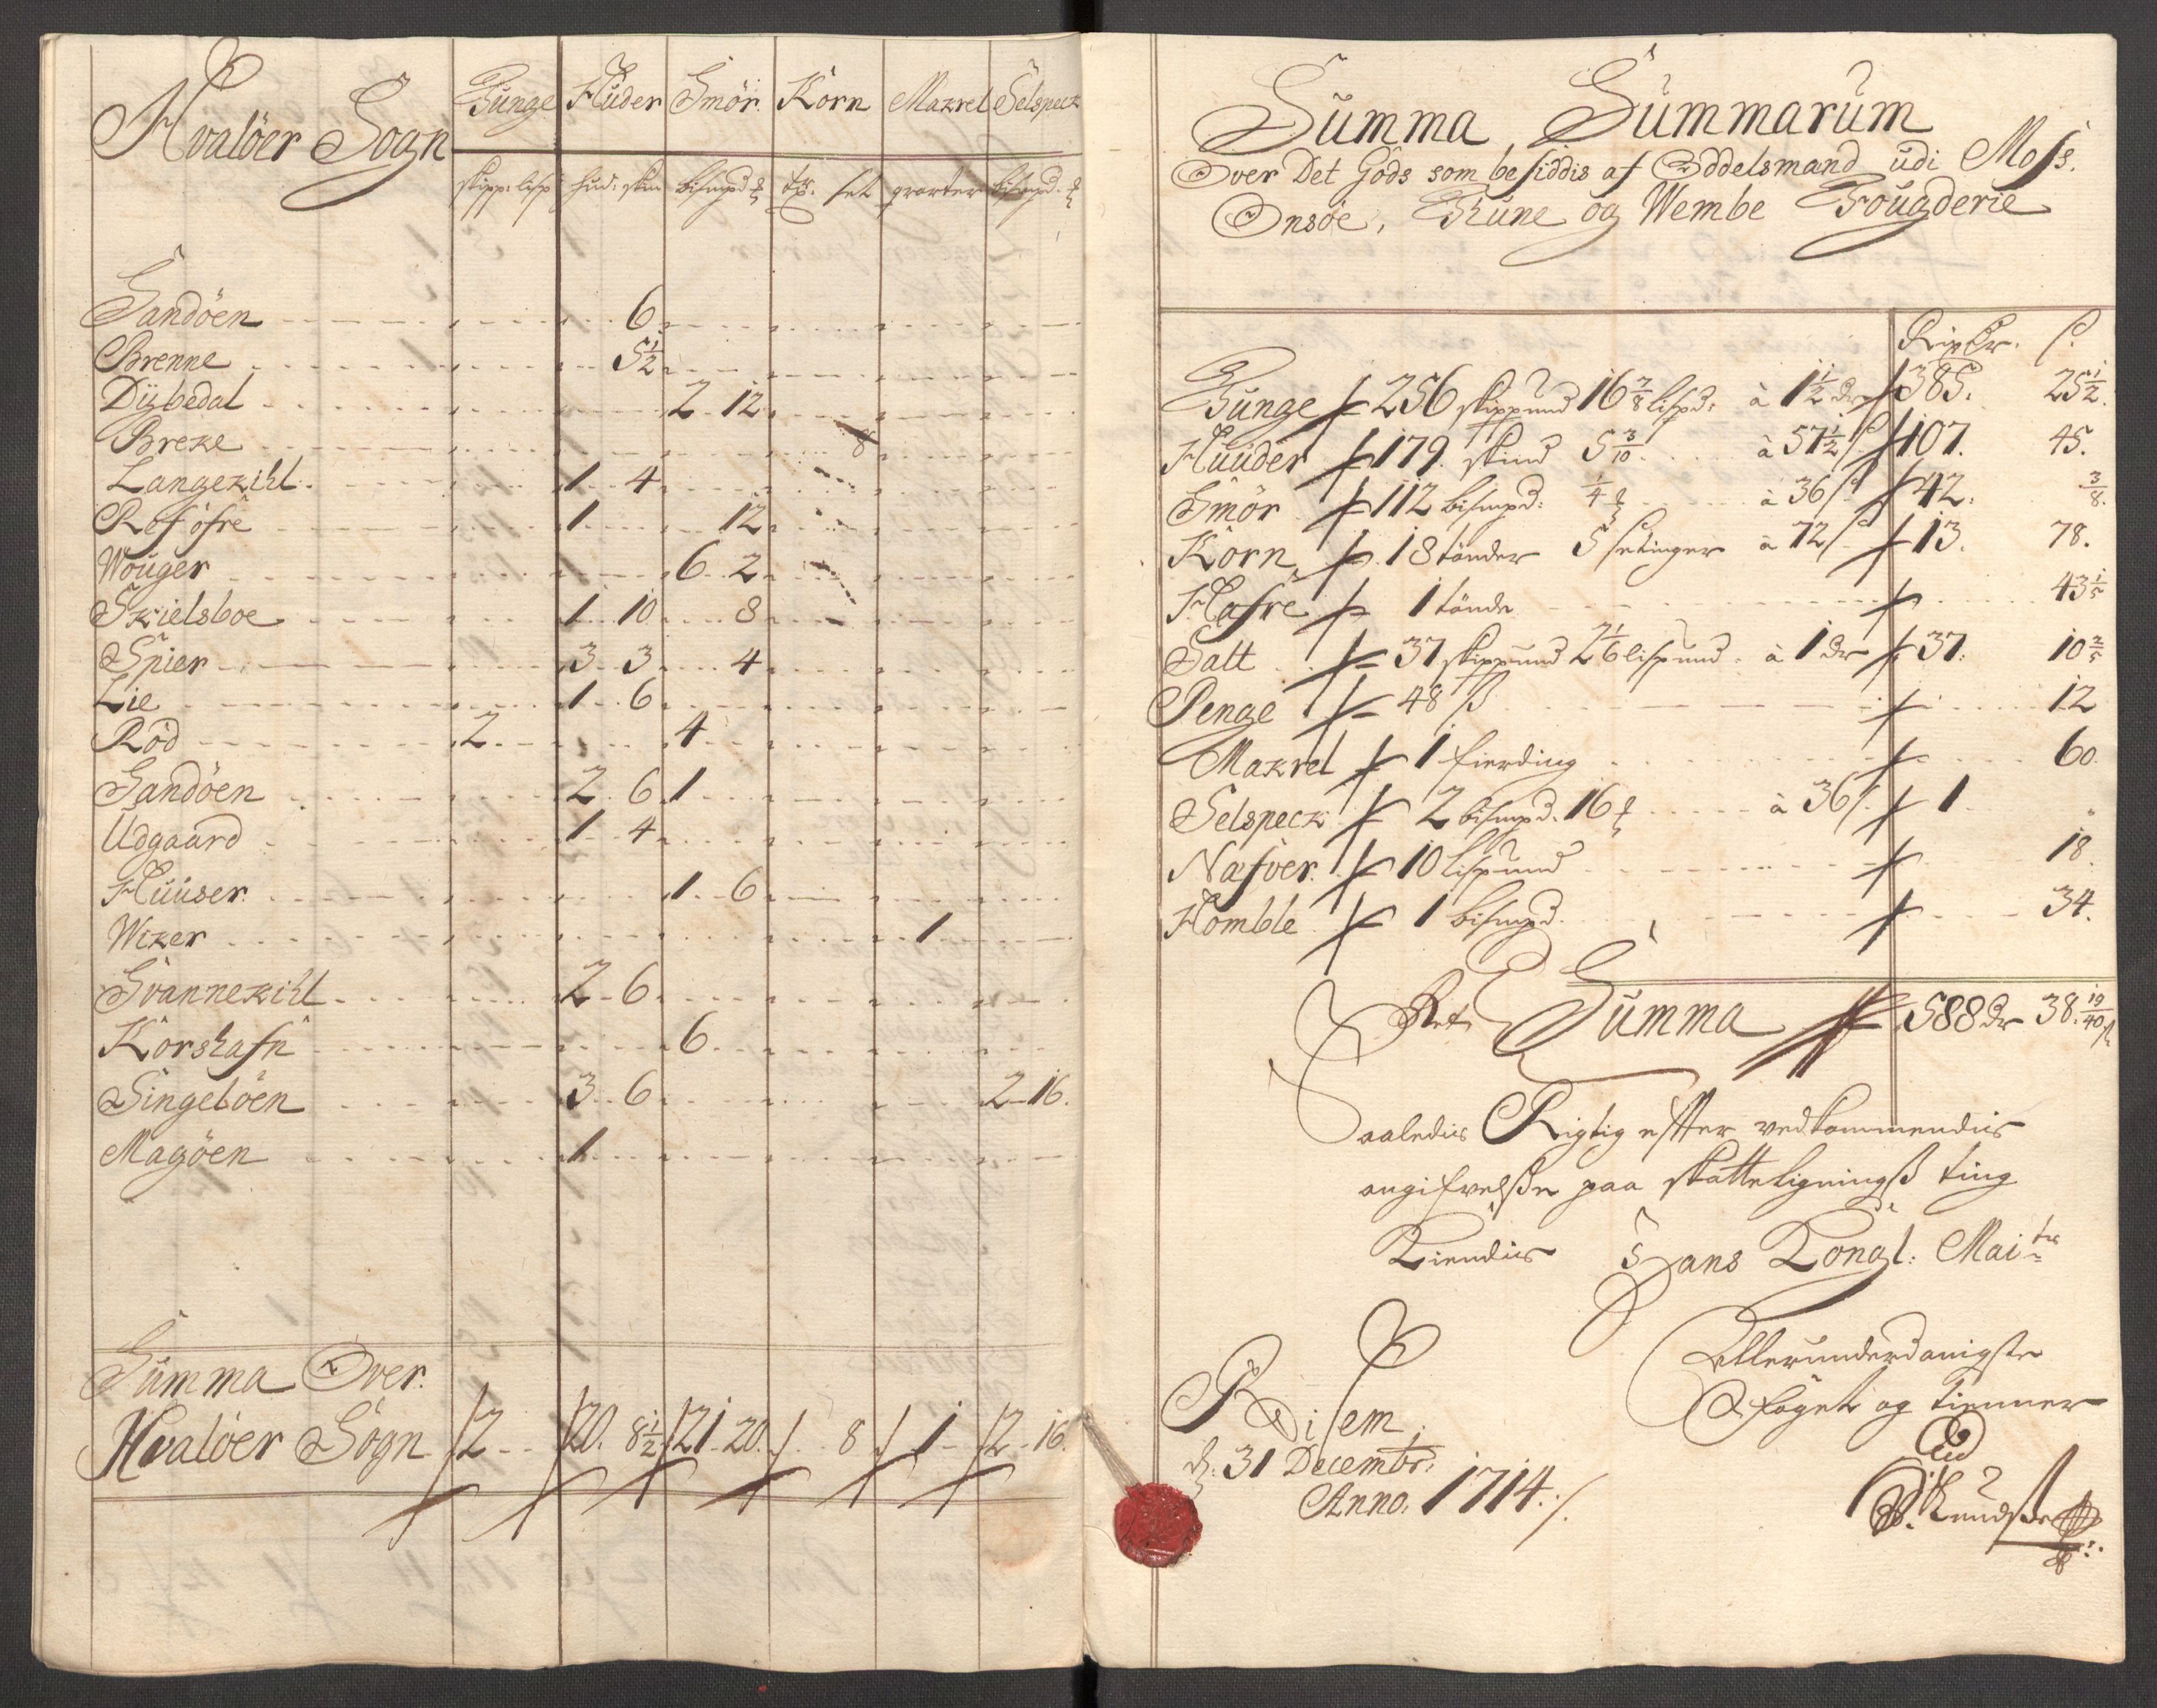 Hvalöer Sogn Tunge Huder Smör Korn Makrel Selspeck
skipp: lisp hud: skin bismpd ℔ tø. set qvarter bismpd. ℔
Sandöen 6
Brenne 5 1/2
Dÿbedal 2 12
Breke 8
Langekihl 1 4
Rofsöfre 1 12
Wouger 6 2
Skielsboe 1 10 8
Spier 3 3 4
Lie 1 6
Röd 2 4
Sandöen 2 6 1
Udgaard 1 4
Huuser 1 6
Wiker 1
Svannekihl 2 6
Korshafn 6
Singelöen 3 6 2 16.
Magöen 1
Summa Over
Hvalöer Sogn 2 20. 8 1/2 21 20. 8 1 2 16.
Summa Summarum
Over Det Gods som besiddis af Oddelsmand udi Moss.
Onsöe, Thune og Wembe Fougderie
Rixdr. s.
Tunge 256 skippund 16 7/8 lispd. à 1 1/2 dr 385. 25 1/2.
Huuder 179. skind 5 3/10 à 57 1/2 s 107. 45.
Smör 112 bismpd: 1/4 ℔ à 36 s 42. 3/8.
Korn 18 tönder 5 setinger à 72 s 13. 78.
Hafre 1 tönde 43 1/5
Salt 37 skippund 2 1/6 lispund à 1 dr 37. 10 2/5
Penge 48 ß 12
Makrel 1 fierding 60.
Selspeck 2 bismpd. 16 ℔ à 36 s. 1
Nafver 10 lispund 18.
Homble 1 bismpd. 34.
Summa 588 dr 38. 19/40 s
Saaledis Rigtig efter vedkommendis
angifvelße paa skatteligningß ting
Kiendis Hans Kongl: Maits
Allerunderdanigste
Foget og Tienner
Disem
d. 31 Decembr:
Anno. 1714.